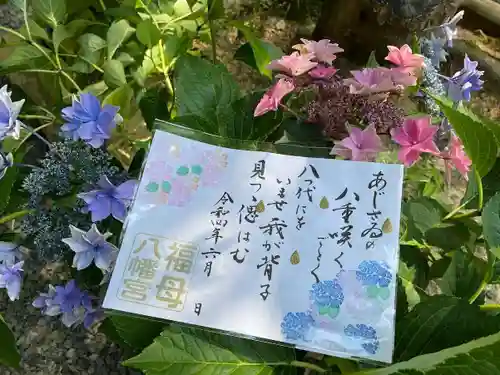 あじさゐの
八重咲く
ごとく
八代にを
いませ我が背子
見つゝ偲はむ
令和四年 六月 日
福母
八幡宮